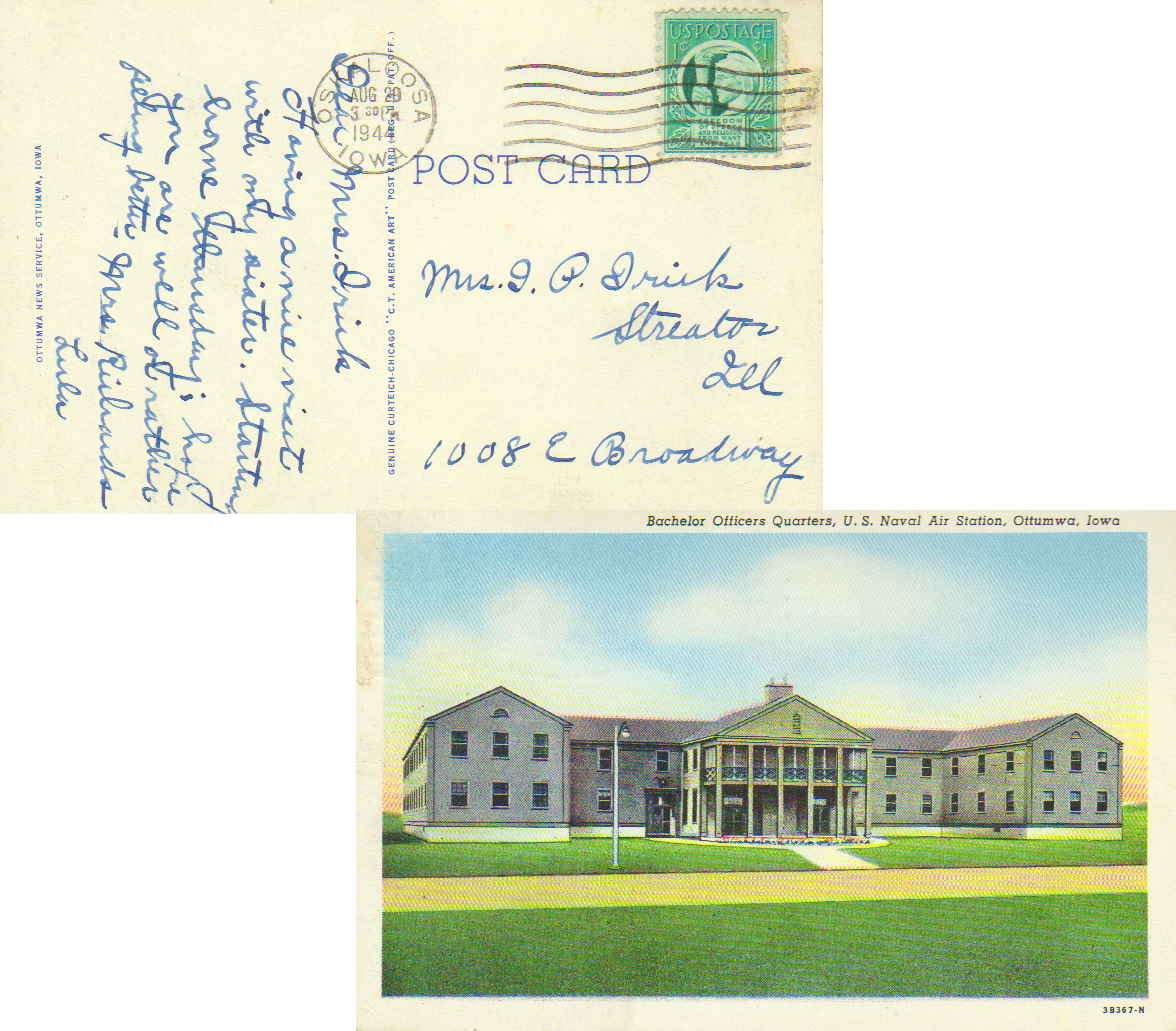 OTTUMWA NEWS SERVICE, OTTUMWA, IOWA
Dear Mrs. Irick
Having a nice visit
with my sister. Starting
home Thursday; hope
you are well or rather
feeling better - Mrs. Richards
Lulu
GENUINE CURTEICH-CHICAGO "C.T. AMERICAN ART" POST CARD (REG. U.S. PAT. OFF.)
OSKALOOSA
AUG 29
3 30 PM
1944
IOWA
U.S. POSTAGE
1¢ 1¢
FREEDOM
OF SPEECH
AND RELIGION
FROM WANT
POST CARD
Mrs. I. P. Irick
Streator
Ill
1008 E Broadway
Bachelor Officers Quarters, U. S. Naval Air Station, Ottumwa, Iowa
3B367-N